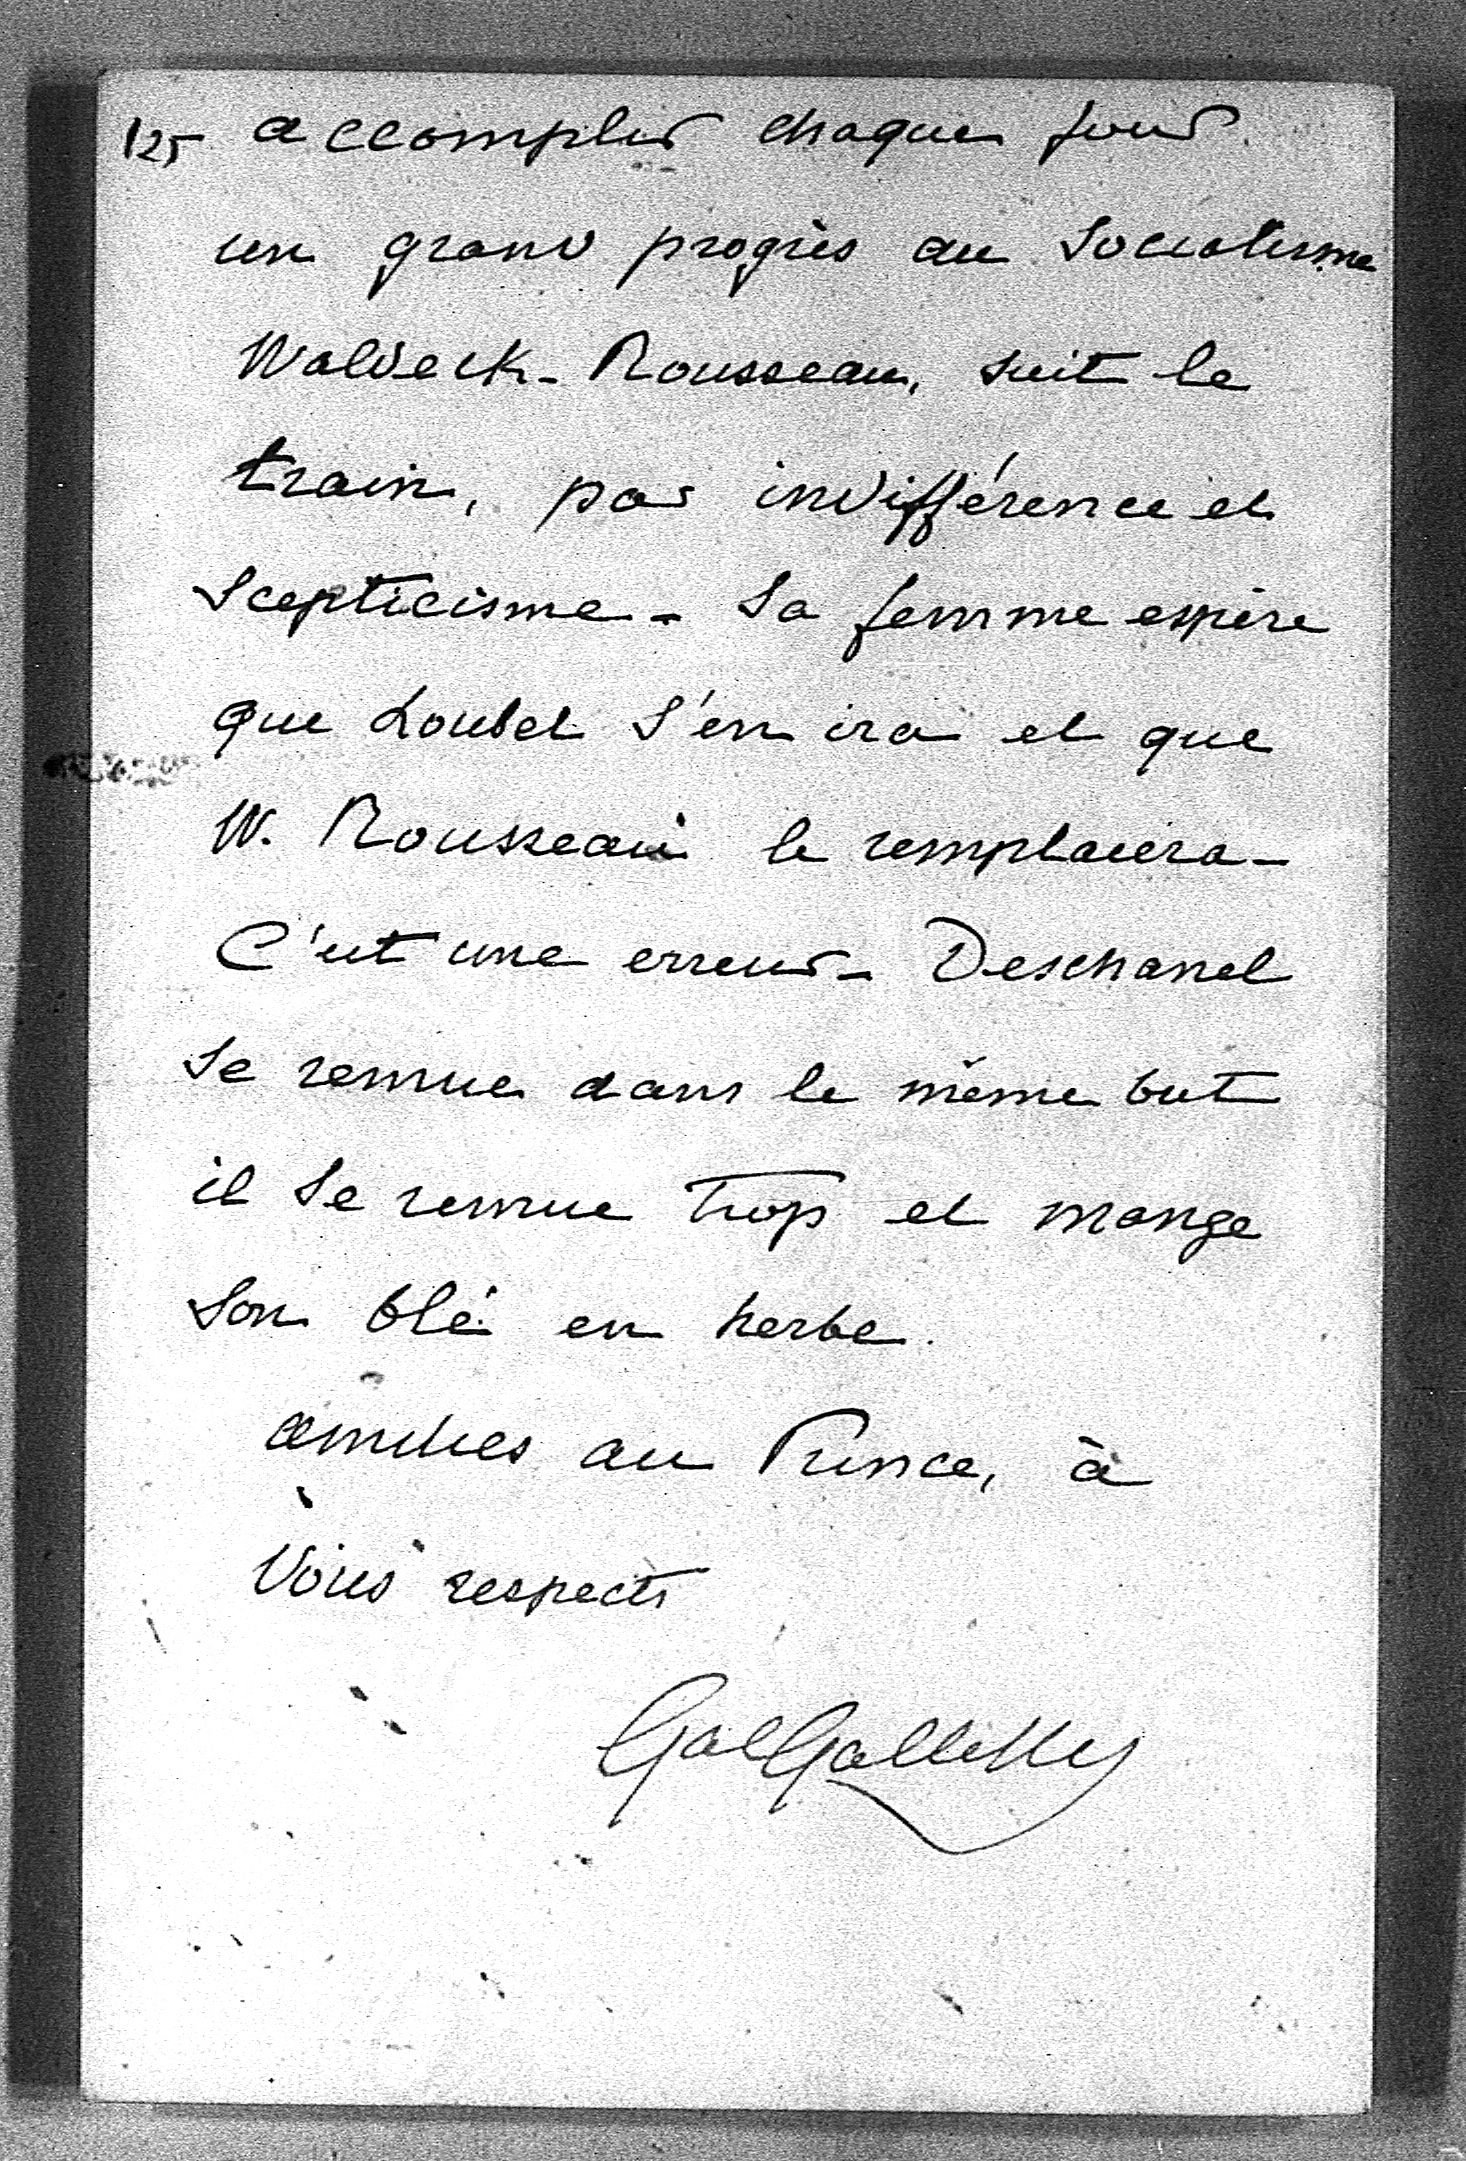 125 accomplir chaque jour
un grand progrès au Socialisme
Waldeck-Rousseau, suit le
train, par indifférence et
Scepticisme - Sa femme espère
que Loubet S'en ira et que
W. Rousseau le remplacera -
C'est une erreur - Deschanel
Se remue dans le même but
il Se remue trop et mange
Son blé en herbe.
amitiés au Prince, à
Vous respects
Gal Galliffet